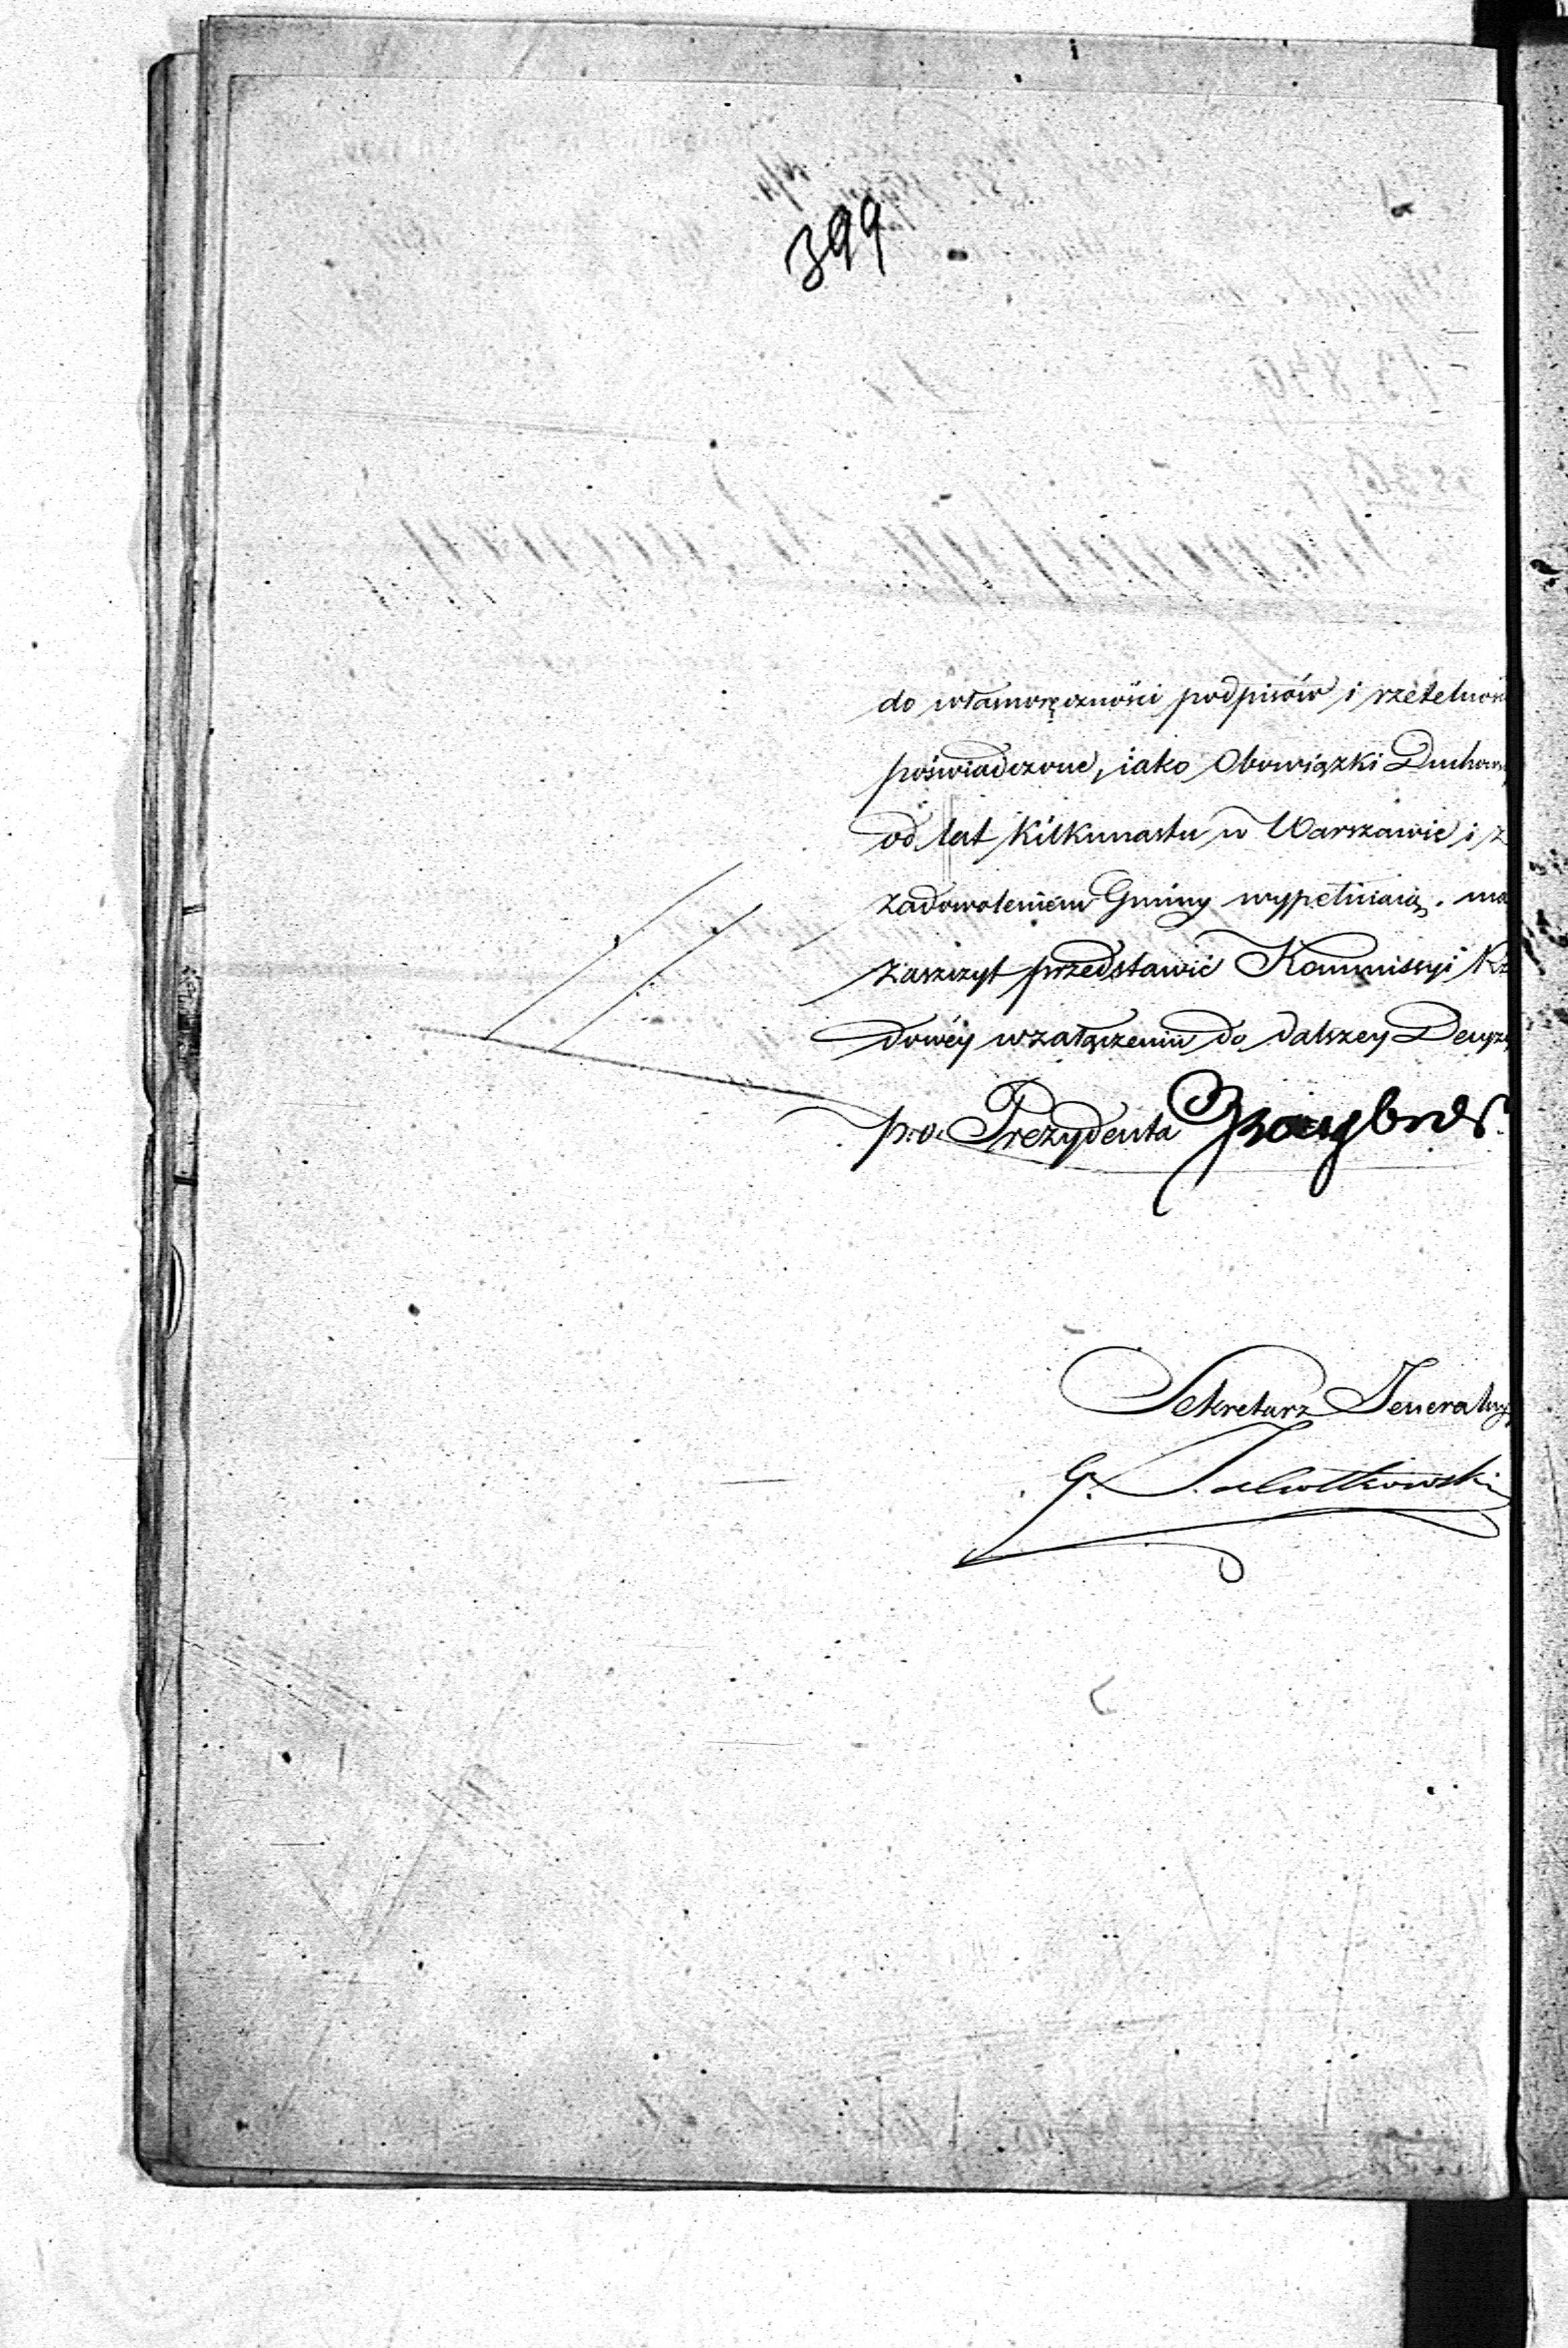 399
do własnoręczności podpisów i rzetelnoś
poświadczone, iako Obowiązki Duchow
od lat kilkunastu w Warszawie i z
zadowoleniem Gminy wypełniaią, ma
zaszczyt przedstawić Kommissyi Rz
dowéy w załączeniu do dalszey Decyz
p.o. Prezydenta
Sekretarz Jeneralny
G.